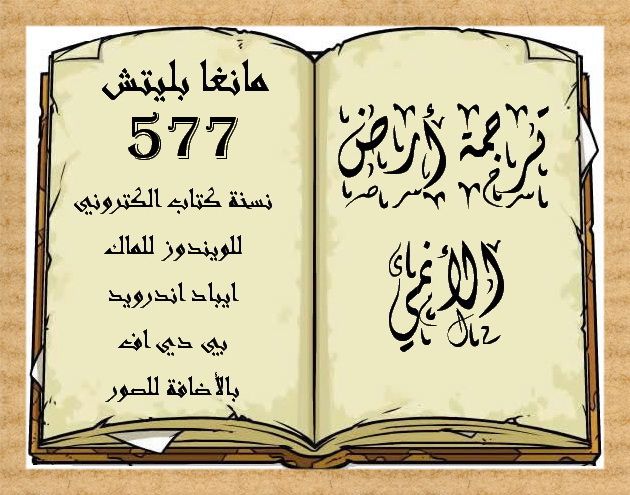 ترجمة أرض
الأنمي
مانغا بليتش
577
نسخة كتاب الكتروني
للويندوز للماك
ايباد اندرويد
بي دي اف
بالأضافة للصور